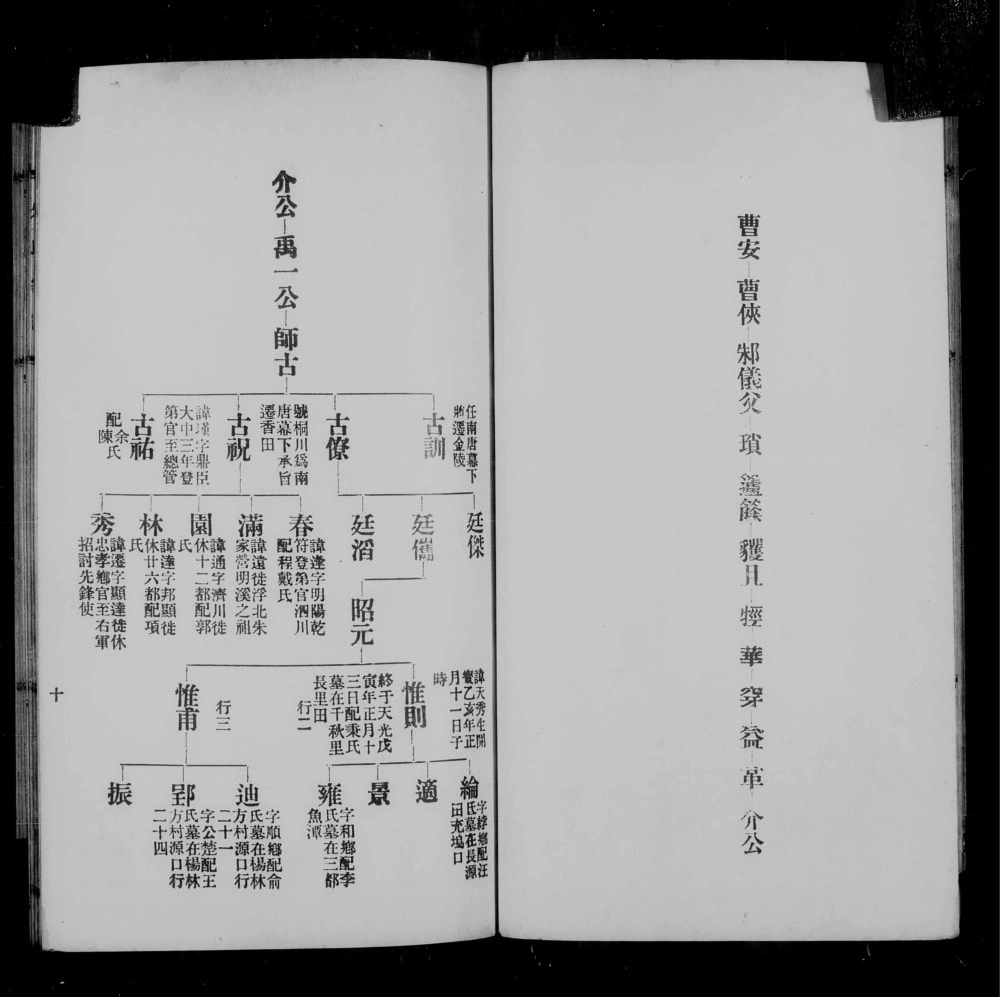 曹安
曹俠
邾儀父
瑣
蘧篨
貜且
牼
華
穿
益
革
介公
介公
禹一公
師古
古訓
任南唐幕下
將遷金陵
古僚
號桐川爲南
唐幕下承旨
遷香田
古祝
諱瑾字鼎臣
大中三年登
第官至總管
古祐
配余
陳氏
廷傑
廷儁
廷滔
春
諱逢字明陽乾
符登第官泗川
配程戴氏
滿
諱遠徙浮北朱
家營明溪之祖
園
諱通字濟川徙
休十二都配郭
氏
林
諱達字邦顯徙
休廿六都配項
氏
秀
諱遷字顯達徙休
忠孝鄉官至右軍
招討先鋒使
昭元
惟則
諱天秀生開
寶乙亥年正
月十一日子
時
終于天光戊
寅年正月十
三日配秉氏
墓在千秋里
長里田
行二
惟甫
行三
綸
字綍鄉配汪
氏墓在長源
田充塢口
適
景
雍
字和鄉配李
氏墓在三都
魚潭
迪
字順鄉配俞
氏墓在楊林
方村源口行
二十一
郢
字公楚配王
氏墓在楊林
方村源口行
二十四
振
十